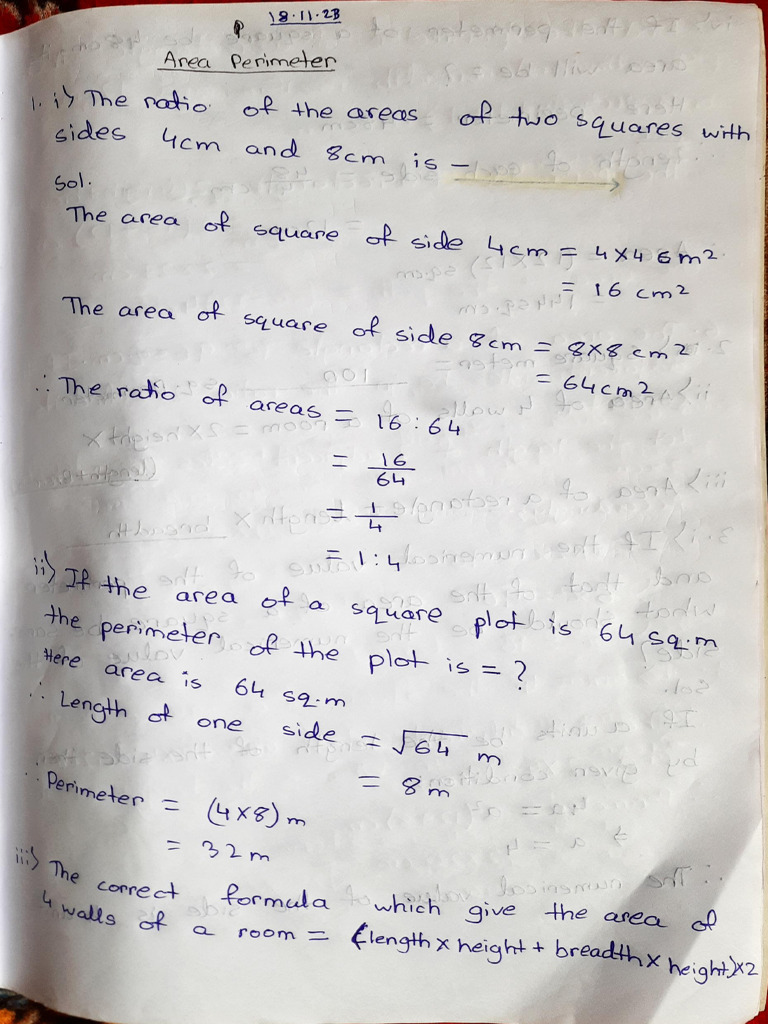 18.11.23
Area Perimeter
1. i) The ratio of the areas of two squares with
sides 4cm and 8cm is —
Sol.
The area of square of side 4cm = 4×4 cm²
= 16 cm²
The area of square of side 8cm = 8×8 cm²
= 64cm²
∴ The ratio of areas = 16 : 64
= 16/64
= 1/4
= 1:4
ii) If the area of a square plot is 64 sq.m
the perimeter of the plot is = ?
Here area is 64 sq.m
∴ Length of one side = √64 m
= 8m
∴ Perimeter = (4×8) m
= 32m
iii) The correct formula which give the area of
4 walls of a room = (length × height + breadth × height)×2